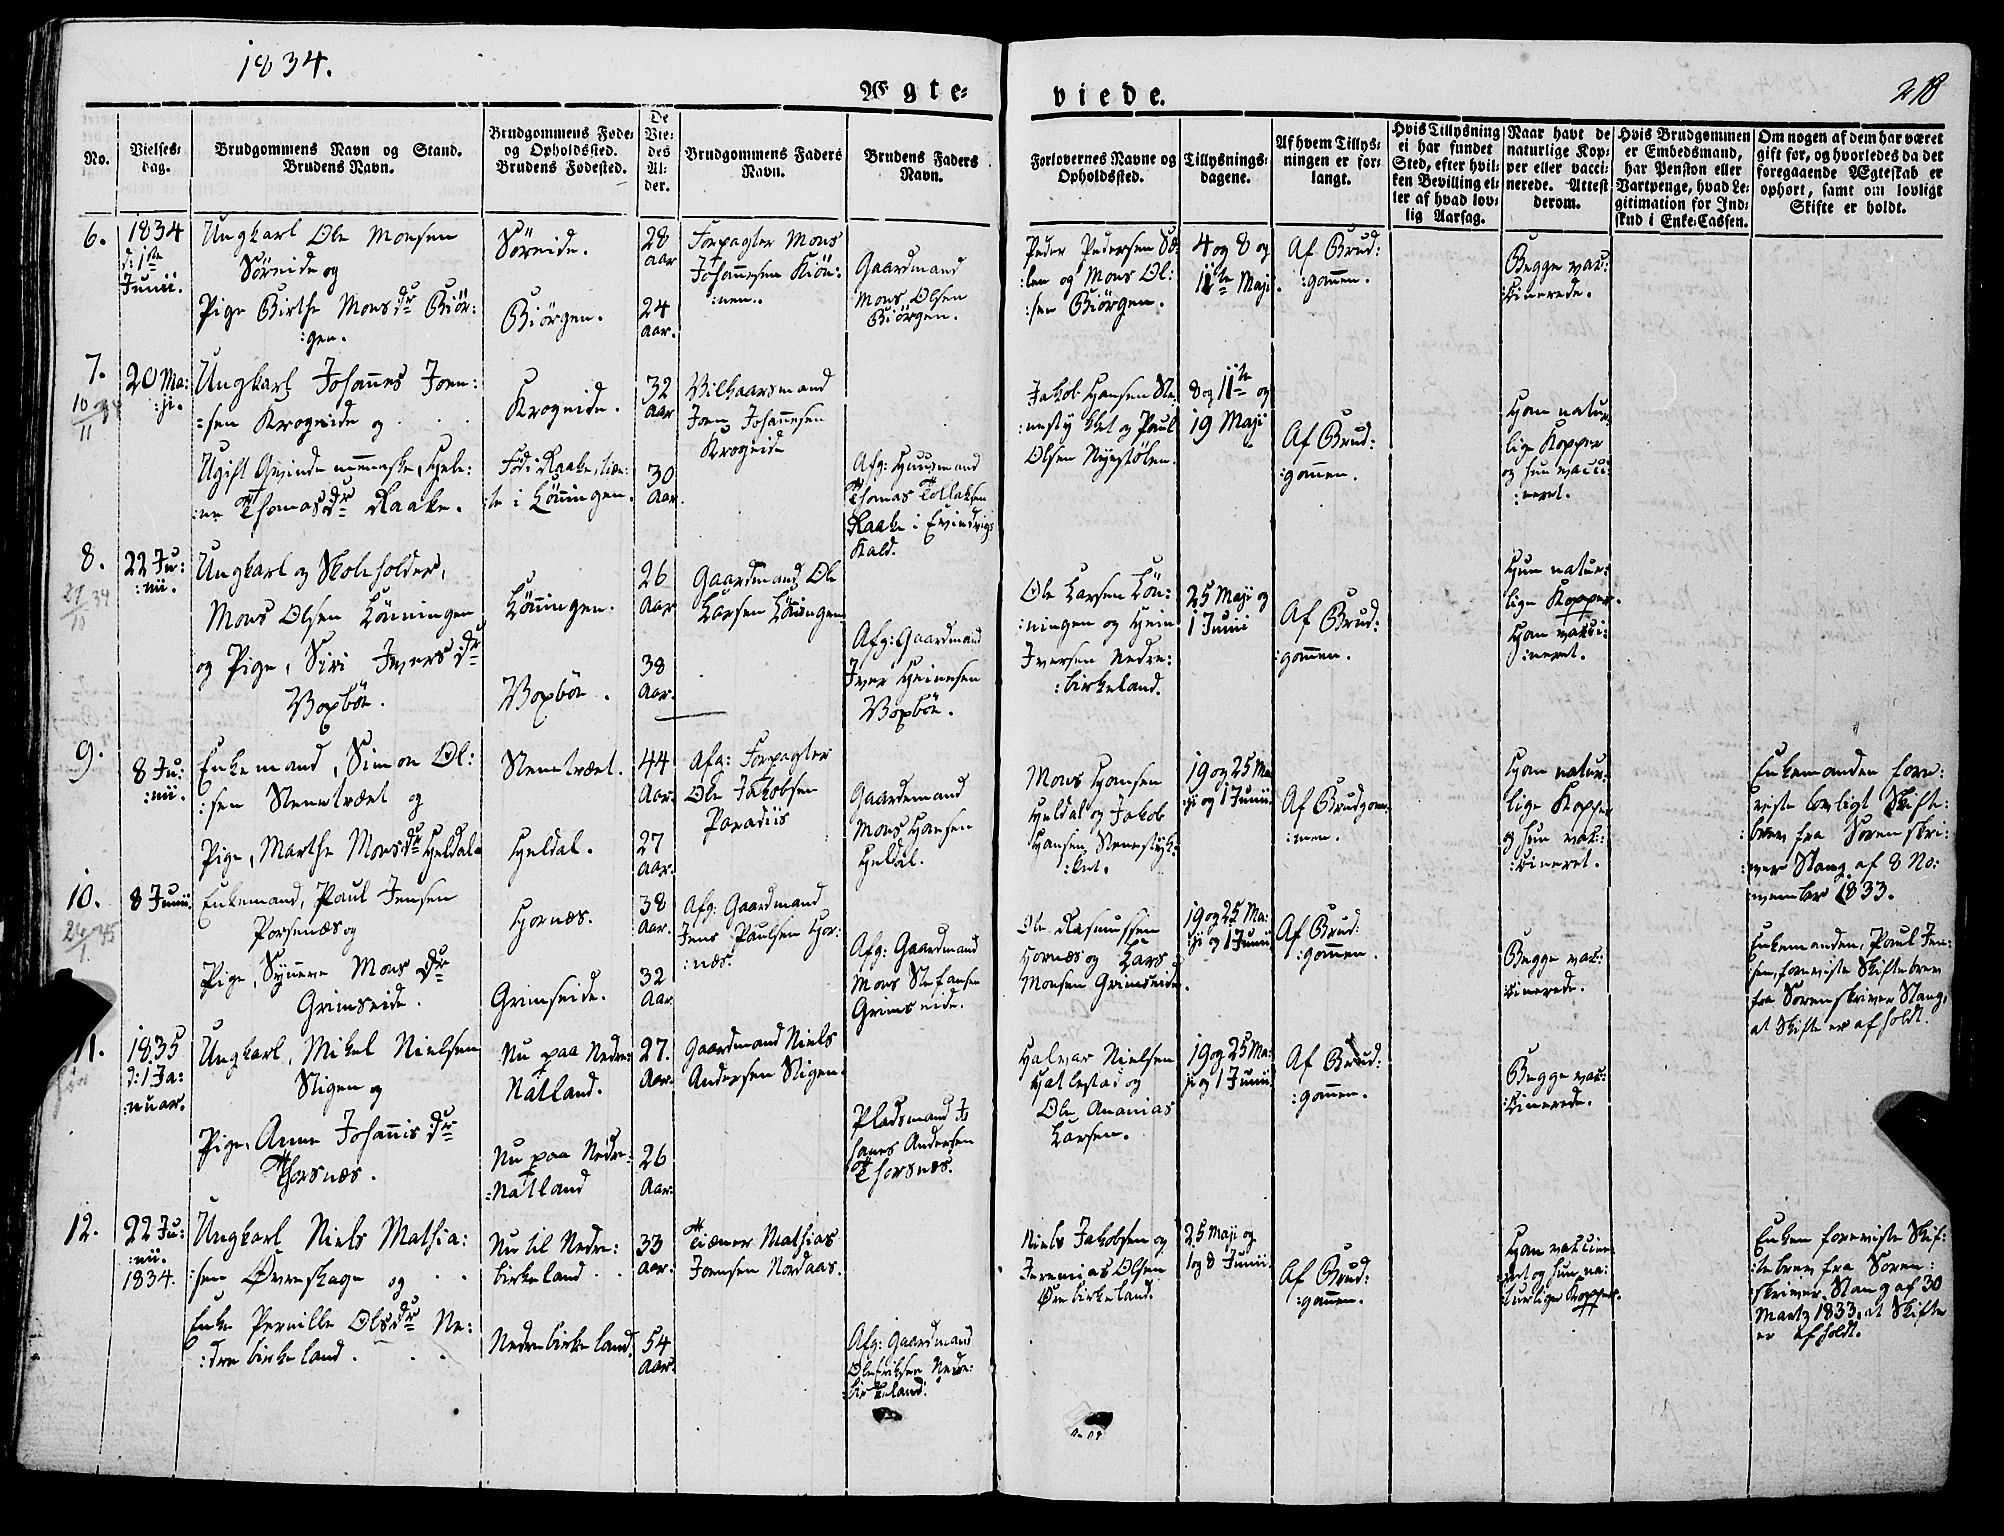 1834.
Ægte-
viede.
218
No.
Vielses-
dag.
Brudgommens Navn og Stand.
Brudens Navn.
Brudgommens Føde-
og Opholdssted.
Brudens Fødested.
De
Vie-
des
Al-
der.
Brudgommens Faders
Navn.
Brudens Faders
Navn.
Forlovernes Navne og
Opholdssted.
Tillysnings-
dagene.
Af hvem Tillys-
ningen er for-
langt.
Hvis Tillysning
ei har fundet
Sted, efter hvil-
ken Bevilling el-
ler af hvad lov-
lig Aarsag.
Naar havt de
naturlige Kop-
per eller vacci-
nerede. Attest
derom.
Hvis Brudgommen
er Embedsmand,
har Pension eller
Vartpenge, hvad Le-
gitimation for Ind-
skud i Enke-Cassen.
Om nogen af dem har været
gift før, og hvorledes da det
foregaaende Ægteskab er
ophørt, samt om lovligt
Skifte er holdt.
6.
1834
d: 1ste
Junii.
Ungkarl Ole Monsen
Söreide og
Pige Birthe Monsdr Biör:
:gen.
Söreide.
Biörgen.
28
aar
24
aar.
Forpagter Mons
Johannesen Kiön:
:nen.
Gaardmand
Mons Olsen
Biörgen.
Peder Pedersen Sæ:
:len og Mons Ol:
:sen Biörgen.
4 og 8 og
11te Maji.
Af Brud:
:gommen.
Begge vac:
:cinerede.
7.
10/11 34
20 Ma:
:ji.
Ungkarl Johannes Joen:
:sen Krogeide og
Ugift Qvinde menneske, Hele:
:ne Thomasdr Raake.
Krogeide.
Född i Raake, tiæn:
:te i Lönningen.
32
aar
30
Aar.
Vilkaarsmand
Joen Johannesen
Krogeide
Afg: Huusmand
Thomas Tollaksen
Raake i Evindvigs
Kald.
Jakob Hansen Ste:
:nestykket og Paul
Olsen Nyestölen.
8 og 11te og
19 Maji
Af Brud:
:gommen.
Han natur:
lige Kopper
og hun vacci:
:neret.
8.
22 Ju:
:nii.
Ungkarl og Skoleholder,
Mons Olsen Lönningen
og Pige, Siri Iversdr
Voxböe.
Lönningen.
Voxböe.
26
Aar
38
Aar.
Gaardmand Ole
Larsen Lönningen
Afg: Gaardmand
Iver Heinesen
Voxböe.
Ole Larsen Lön:
:ningen og Hein
Iversen Nedre:
:birkeland.
25 Maji og
1 Junii
Af Brud:
:gommen.
Hun natur:
lige Kopper.
Han vacci:
:neret.
9.
8 Ju:
:nii.
Enkemand, Simon Ol:
:sen Stenetræet og
Pige, Marthe Monsdr Heldal
Stenetræet.
Heldal.
44
Aar.
27
Aar.
Afg: Forpagter
Ole Jakobsen
Paradiis
Gaardemand
Mons Hansen
Heldal.
Mons Hansen
Heldal og Jakob
Hansen Stenestyk:
:ket.
19 og 25 Ma
:ji og 1 Junii.
Af Brudgom:
:men.
Han natur:
lige Kopper
og hun vac:
:cineret.
Enkemanden fore:
:viste lovligt Skifte:
:brev fra Sorenskri:
:ver Stang af 8 No:
:vember 1833.
10.
8 Junii.
Enkemand, Paul Jensen
Porsenæs og
Pige, Synneve Monsdr
Grimseide.
Hornæs.
Grimseide.
38
Aar.
32
Aar.
Afg: Gaardmand
Jens Paulsen Hor:
:næs.
Afg: Gaardmand
Mons Stefansen
Grimseide.
Ole Rasmussen
Hornæs og Lars
Monsen Grimseide.
19 og 25 Ma:
:ji og 1 Junii
Af Brud:
:gommen.
Begge vac:
:cinerede.
Enkemanden, Paul Jen:
:sen, foreviste Skiftebrev
fra Sorenskriver Stang,
at Skifte er afholdt.
11.
1835
d: 1 Ja:
:nuar.
Ungkarl, Mikel Nielsen
Stigen og
Pige, Anne Johannisdr
Thorsnæs.
Nu paa Nedre:
Natland.
Nu paa Nedre:
:Natland
27.
Aar.
26
Aar.
Gaardmand Niels
Andersen Stigen.
Pladsmand Jo
hanes Andersen
Thorsnæs.
Halvar Nielsen
Hatlestad og
Ole Ananias
Larsen.
19 og 25 Ma:
ji og 1 Junii
Af Brud:
:gommen.
Begge vac:
:cinerede.
12.
22 Ju:
:nii.
1834.
Ungkarl Niels Mathia:
:sen Øvreskage og
Enke Pernille Olsdr Ne:
:dre birkeland.
Nu til Nedre:
birkeland.
Nedrebirkeland.
33
Aar.
54
Aar.
Tiæner Mathias
Joensen Nordaas.
Afg: Gaardmand
Ole Eriksen Nedre:
birkeland.
Niels Jakobsen og
Jeremias Olsen
Øvrebirkeland.
25 Maji og
1 og 8 Junii.
Af Brud:
:gommen.
Han vaccine:
:ret og hun na:
:turlige Kopper.
Enken foreviste Skif:
:tebrev fra Soren:
:skriver Stang af 30
Marts 1833, at Skifte
er afholdt.